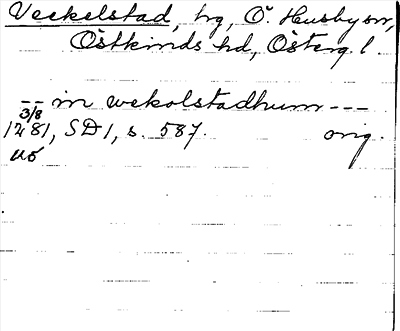 Veckelstad, hg, Ö. Husby sn,
Östkinds hd, Österg. l.
-- in wekolstadhum ---
3/8
1281, SD1, s. 587. orig.